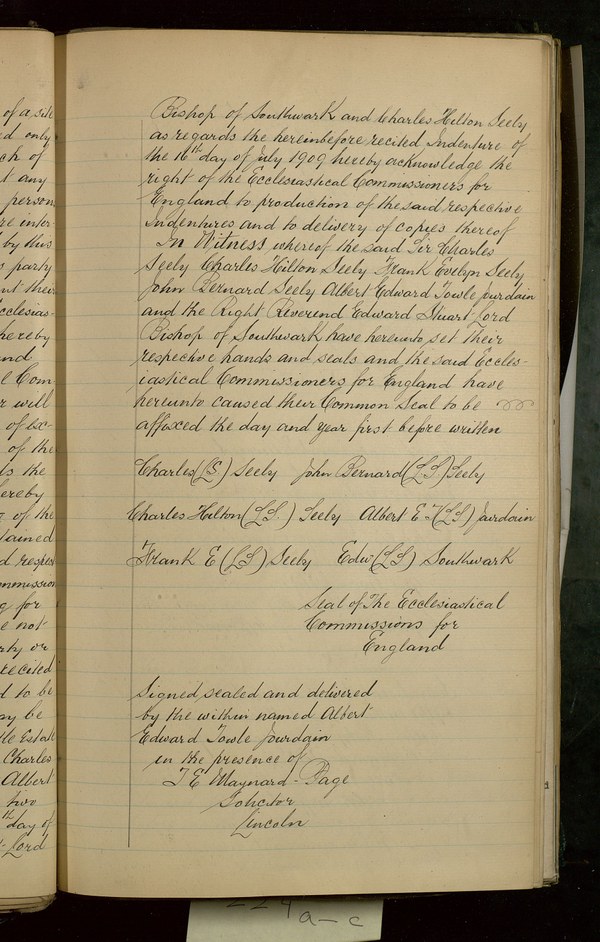 of a site
ed only
ch of
t any
person
re inter-
by this
s party
nt their
cclesias-
hereby
and
l Com
r will
of Ec-
of the
ls the
hereby
of the
tained
d respect
mmission
g for
e not
rty or
recited
d to be
ay be
tle Estate
Charles
Albert
two
th day of
Lord
Bishop of Southwark and Charles Hilton Seely
as regards the hereinbefore recited Indenture of
the 16th day of July 1909 hereby acknowledge the
right of the Ecclesiastical Commissioners for
England to production of the said respective
Indentures and to delivery of copies thereof
In Witness whereof the said Sir Charles
Seely Charles Hilton Seely Frank Evelyn Seely
John Bernard Seely Albert Edward Towle Jourdain
and the Right Reverend Edward Stuart Lord
Bishop of Southwark have hereunto set their
respective hands and seals and the said Eccles-
iastical Commissioners for England have
hereunto caused their Common Seal to be
affixed the day and year first before written
Charles (LS) Seely John Bernard (LS) Seely
Charles Hilton (LS.) Seely Albert E T (LS) Jourdain
Frank E (LS) Seely Edw (LS) Southwark
Seal of The Ecclesiastical
Commissions for
England
Signed sealed and delivered
by the within named Albert
Edward Towle Jourdain
in the presence of
T E Maynard-Page
Solicitor
Lincoln
a-c